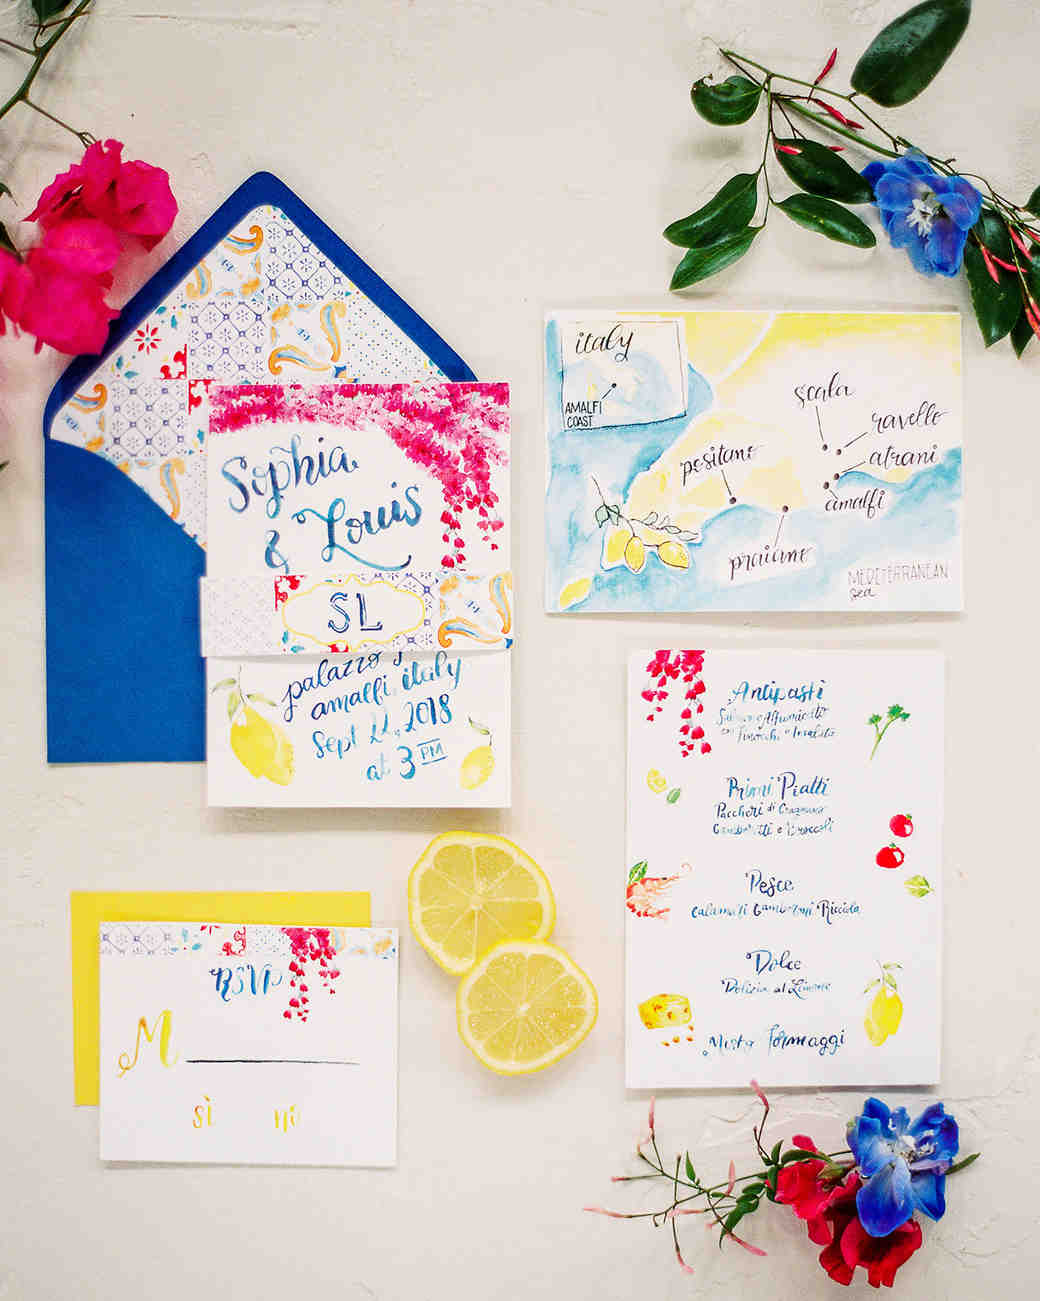 Sophia
& Louis
SL
palazzo
amalfi, italy
Sept 22, 2018
at 3 PM
italy
AMALFI
COAST
scala
ravello
atrani
amalfi
positano
praiano
MEDITERRANEAN
sea
Antipasti
Salmone Affumicato
con Finocchi e Insalata
Primi Piatti
Paccheri di Gragnano
Gamberetti e Broccoli
Pesce
Calamari Gamberoni Ricciola
Dolce
Delizia al Limone
Misto Formaggi
RSVP
M
sì no